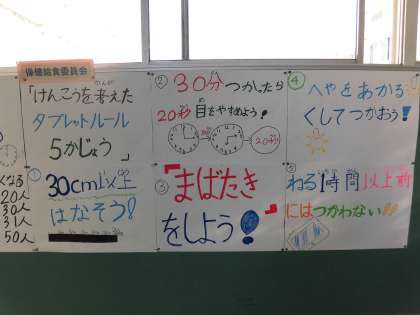 保健給食委員会
「けんこうを考えた
タブレットルール
5かじょう」
① 30cm以上
はなそう!
② 30分つかったら
20秒 目をやすめよう!
20秒
③ 「まばたき
をしよう!」
④ へやをあかる
くしてつかおう!
⑤ ねる1時間以上前
にはつかわない!!
くなる
20人
30人
31人
50人